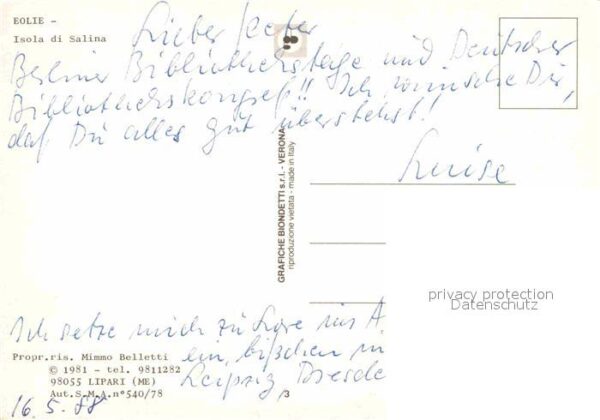 EOLIE -
Isola di Salina
Lieber Peter
Berliner Bibliothekstage und Deutscher
Bibliothekskongreß!! Ich wünsche Dir,
daß Du alles gut überstehst!
Luise
GRAFICHE BIONDETTI s.r.l. - VERONA
riproduzione vietata - made in Italy
privacy protection
Datenschutz
Ich setze mich zu Lore ins A
ein bißchen in
Leipzig, Dresde
Propr.ris. Mimmo Belletti
© 1981 - tel. 9811282
98055 LIPARI (ME)
Aut.S.M.A.n°540/78
/3
16.5.88